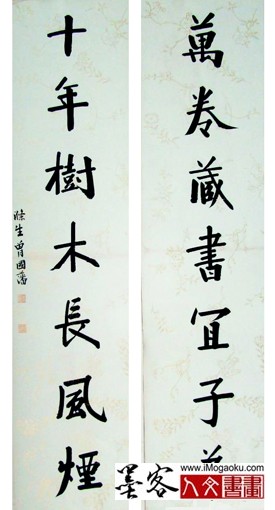 萬卷藏書宜子
十年樹木長風煙
滌生曾國藩
www.iMogaoku.com
墨客
人文書畫